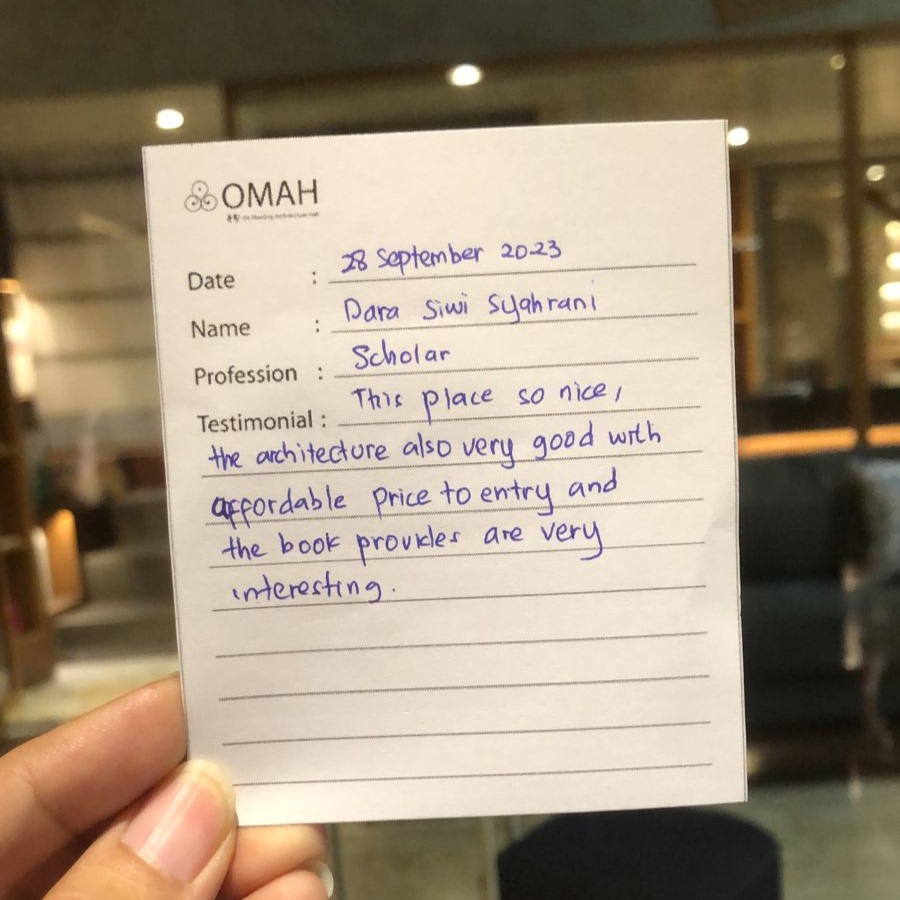 OMAH
Date : 28 September 2023
Name : Dara Siwi Syahrani
Profession : Scholar
Testimonial : This place so nice,
the architecture also very good with
affordable price to entry and
the book provides are very
interesting.